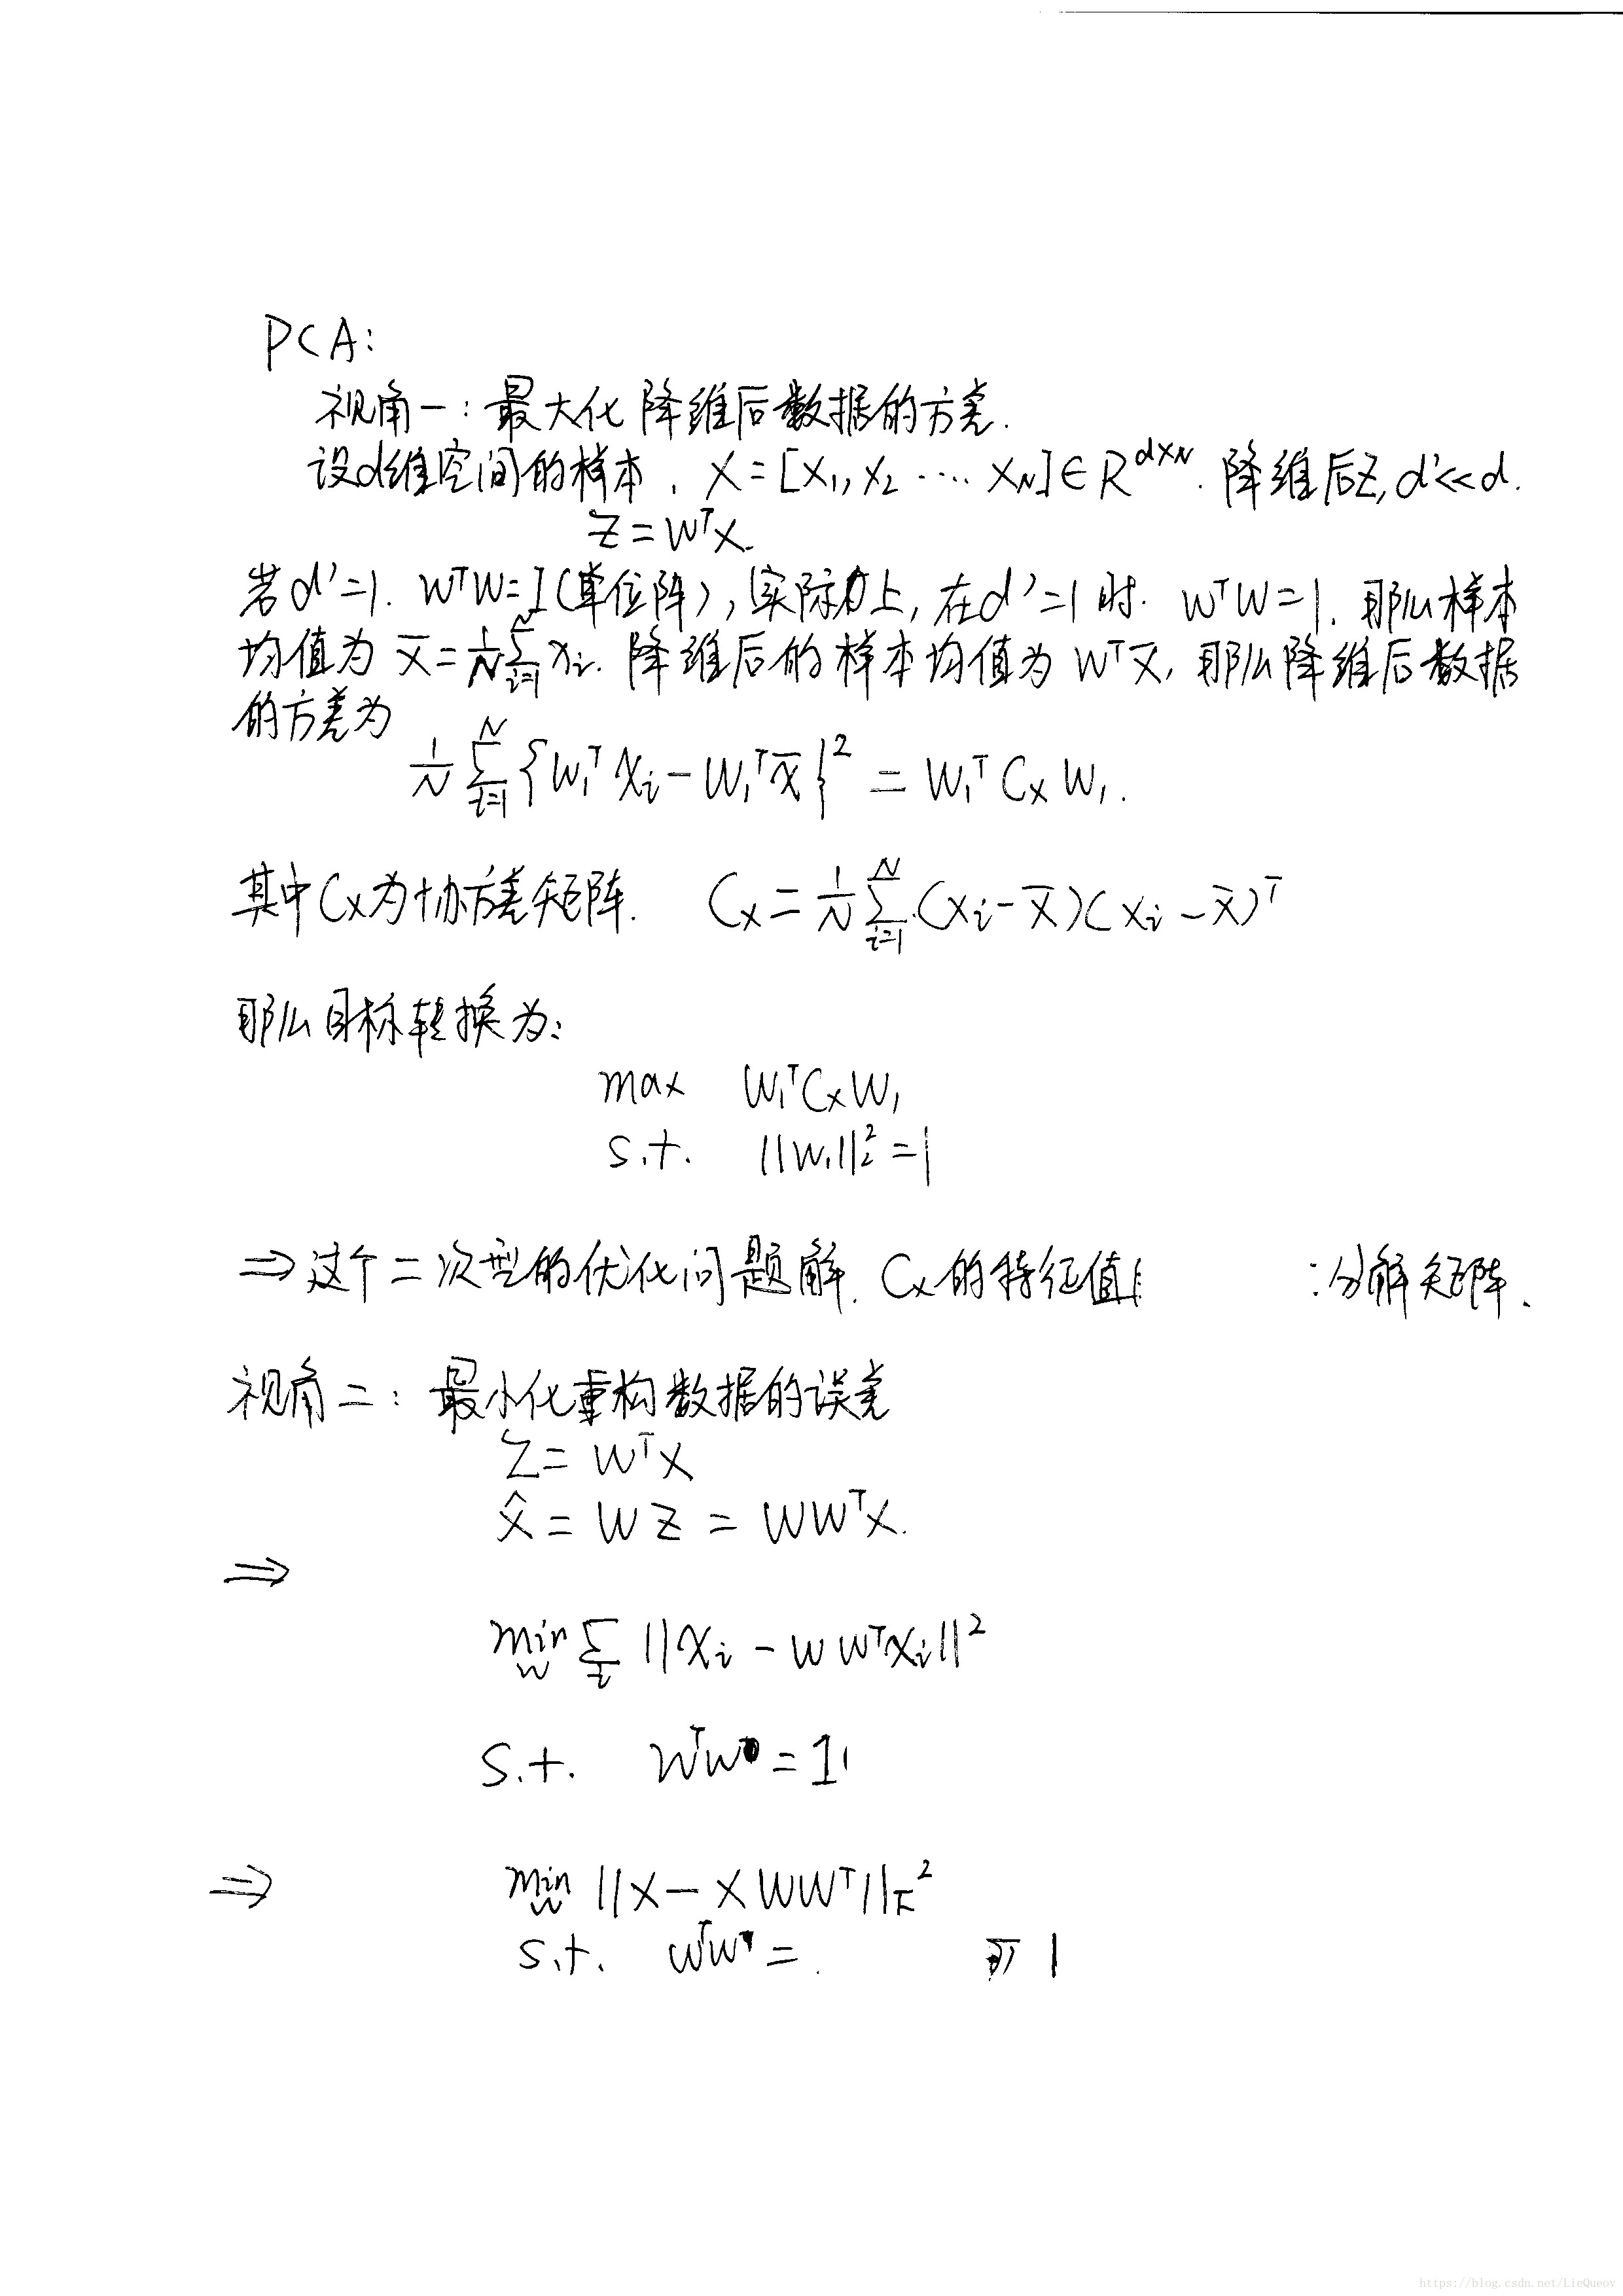 PCA:
视角一:最大化降维后数据的方差.
设d维空间的样本, X=[x₁,x₂…xₙ]∈R^{d×N}. 降维后Z, d'<<d.
Z=WᵀX.
若d'=1. WᵀW=I(单位阵),(实际上,在d'=1时. WᵀW=1. 那么样本
均值为 x̄=1/N Σ_{i=1}^{N} xᵢ. 降维后的样本均值为 Wᵀx̄, 那么降维后数据
的方差为
1/N Σ_{i=1}^{N} {W₁ᵀxᵢ-W₁ᵀx̄}² = W₁ᵀCₓW₁.
其中Cₓ为协方差矩阵. Cₓ=1/N Σ_{i=1}^{N} (xᵢ-x̄)(xᵢ-x̄)ᵀ
那么目标转换为:
max W₁ᵀCₓW₁
s.t. ||W₁||₂²=1
⇒这个二次型的优化问题解. Cₓ的特征值 分解矩阵.
视角二: 最小化重构数据的误差
Z=WᵀX
X̂=WZ=WWᵀX.
⇒
min_W Σᵢ ||xᵢ-WWᵀxᵢ||²
s.t. WᵀW=I
⇒ min_W ||X-XWWᵀ||_F²
s.t. WᵀW=